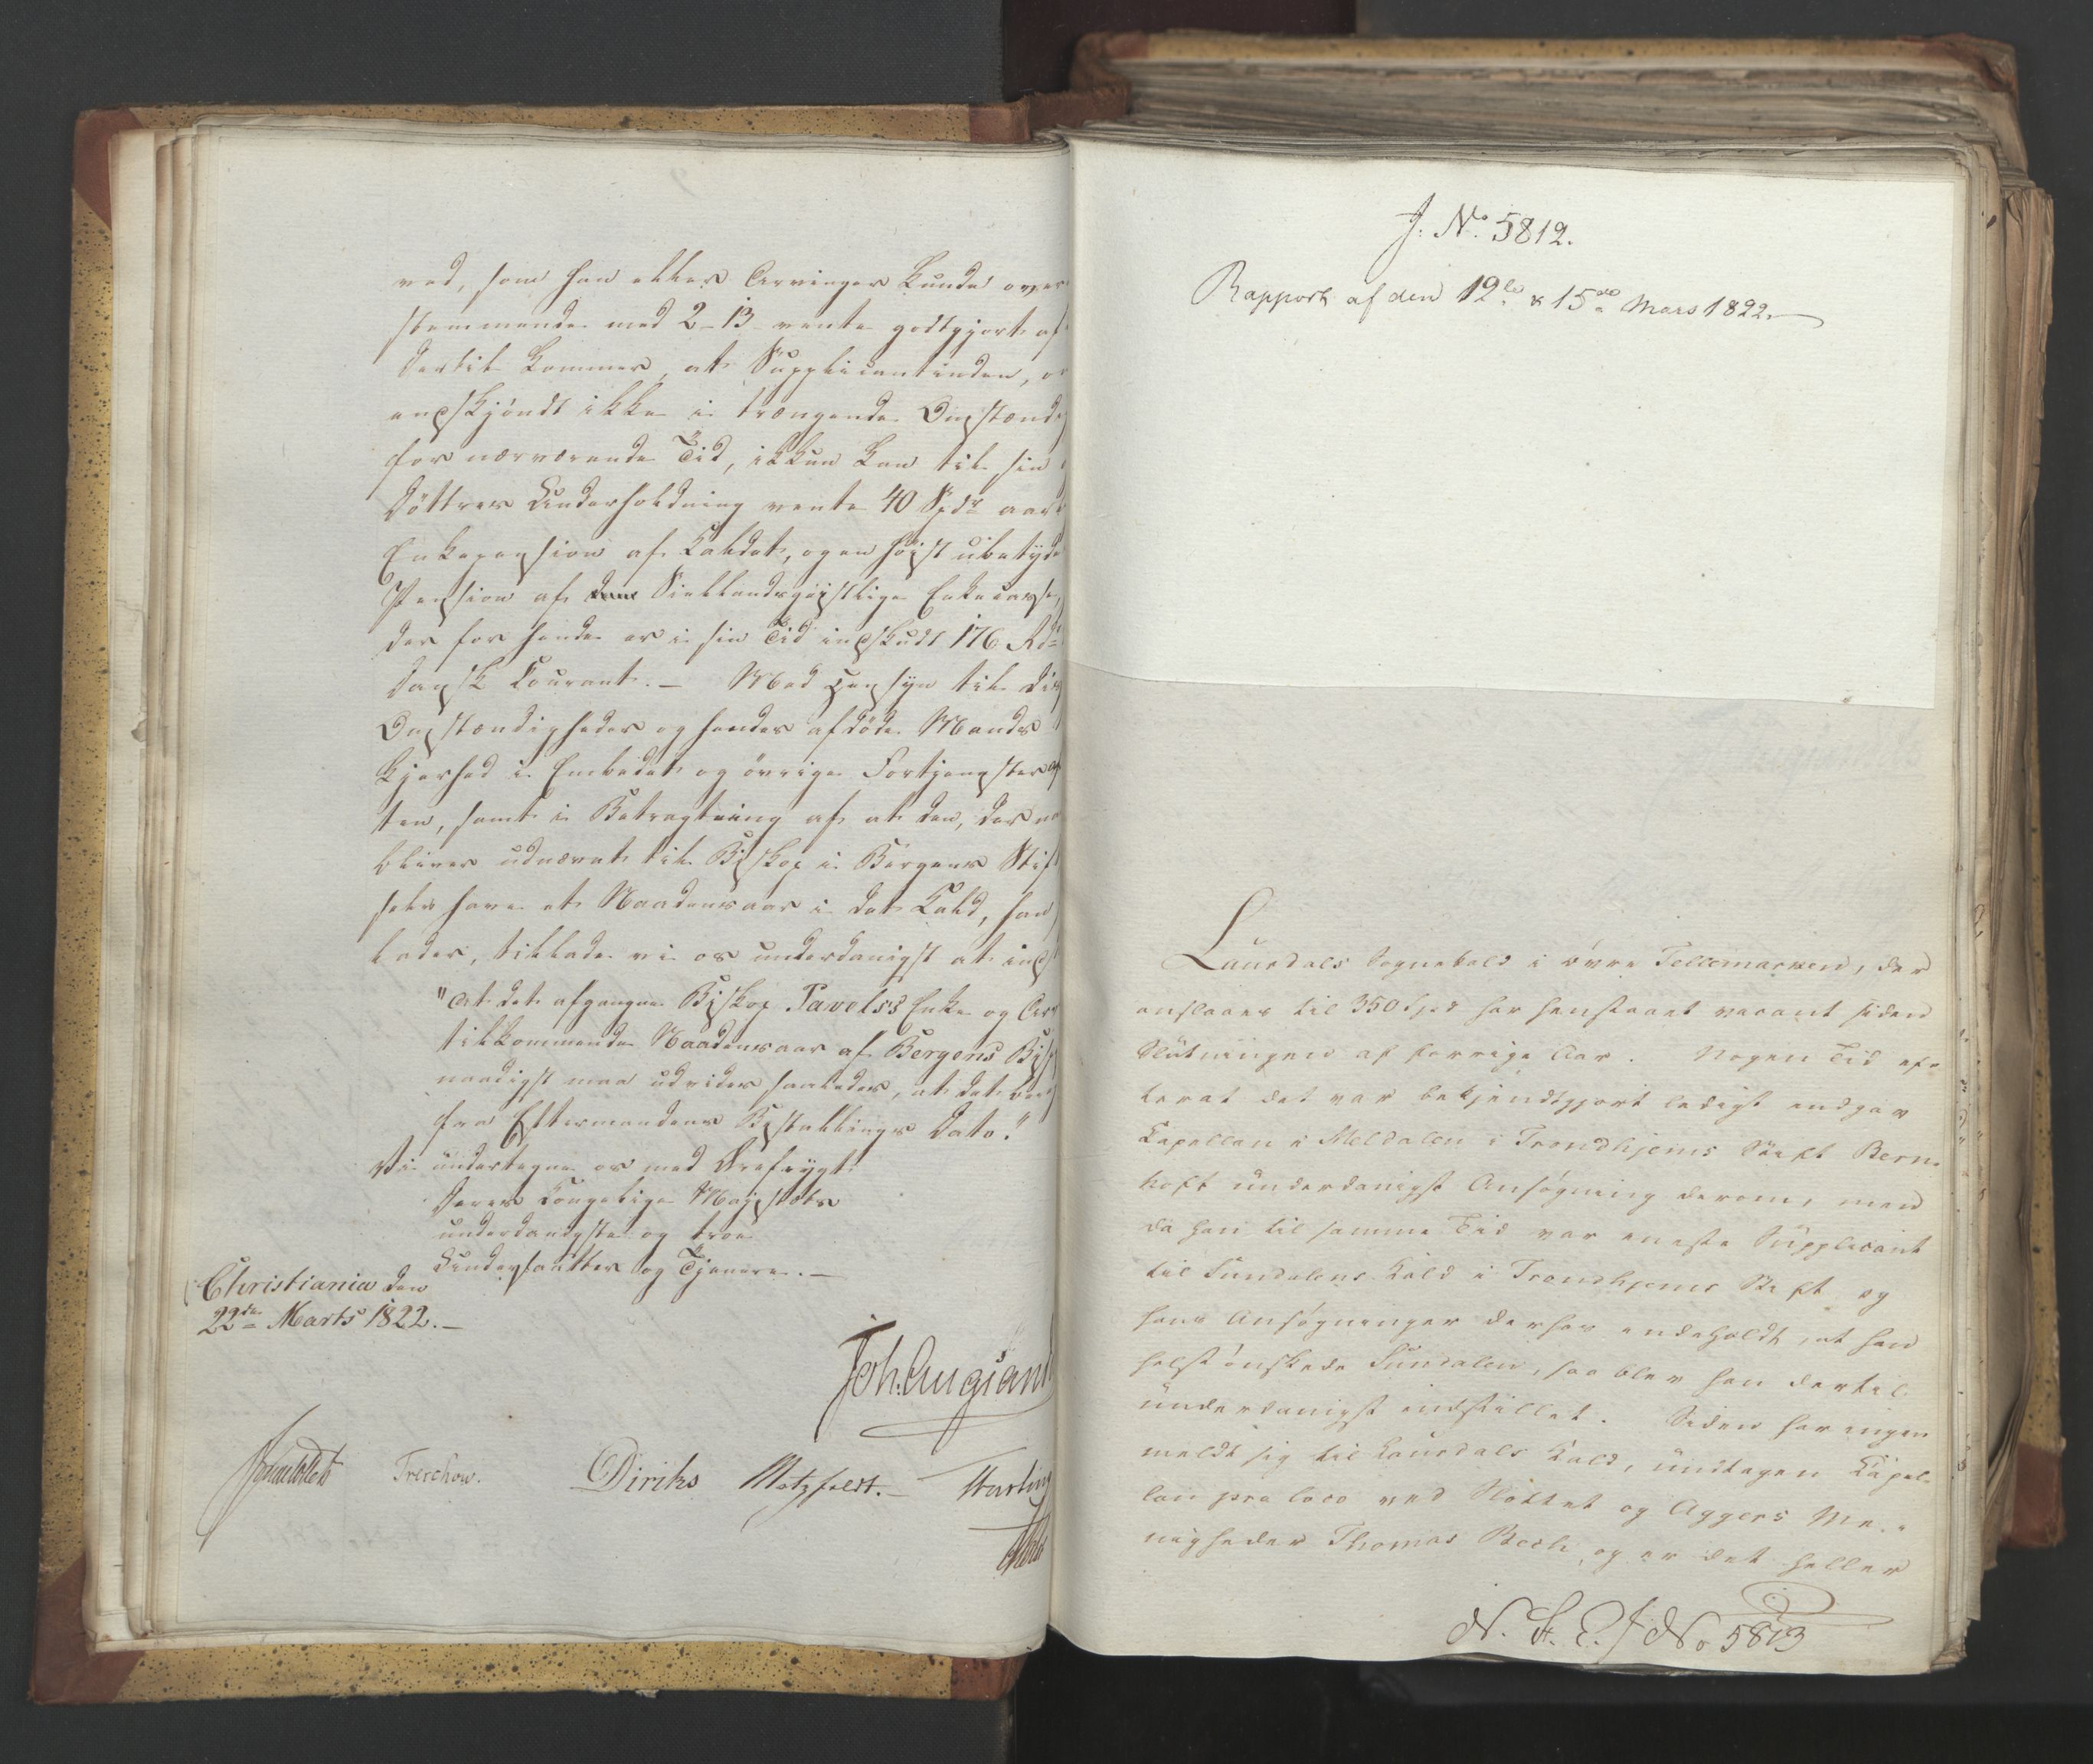 ved, som han eller Arvinger kunde over
stemmende med 2-13- vente godtgjort af
Dertil kommer, at Supplicantinden, o
enskjöndt ikke i trængende Omstænd
for nærværende Tid, ikkun kan til sin
Döttres Underholdning vente 40 Spdr aar
Enkepension af Kaldet, og en höist ubetyde
Pension af Siellandsgeistlige Enkecasse,
der for hende er i sin Tid indskudt 176 Rd
dansk Courant. — Med Hensyn til dis
Omstændigheder og hendes afdöde Mands
kjærhed i Embedet og övrige Fortjenester af
ten, samt i Betragtning af at den, der nu
bliver udnævnt til Biskop i Bergens Stif
selv have et Naadensaar i det Kald, han
lader, tillade vi os underdanigst at ind
"At det afgangne Biskop Pavelss Enke og Arv
tilkommende Naadensaar af Bergens Bis
naadigst maa udvides saaledes, at det ber
fra Eftermandens Bestallings Dato."
Vi undertegne os med Ærefrygt
Deres Kongelige Majestæts
underdanigste og troe
Undersaatter og Tjenere. —
Christiania den
22de Marts 1822. —
Joh. Aug Sand
Jonas Collett Treschow. Diriks Motzfeldt. — 
J. No. 5812.
Rapport af den 12te & 15de Mars 1822. —
Laurdals Sognekald i övre Tellemarken, der
anslaaes til 350 Spd har henstaaet vacant siden
Slutningen af forrige Aar. Nogen Tid ef-
terat det var bekjendtgjort ledigt indgav
Capellan i Meldalen i Trondhjems Stift Bern-
hoft underdanigst Ansögning derom, men
da han til samme Tid var eneste Supplicant
til Sundalens Kald i Trondhjems Stift og
hans Ansögninger derhos indeholdt, at han
helst önskede Sundalen, saa blev han dertil
underdanigst indstillet. Siden har ingen
meldt sig til Laurdals Kald, undtagen Capel-
lan pro loco ved Slottet og Aggers Me-
nigheder Thomas Bech, og er det heller
N. St. E. J No 5813